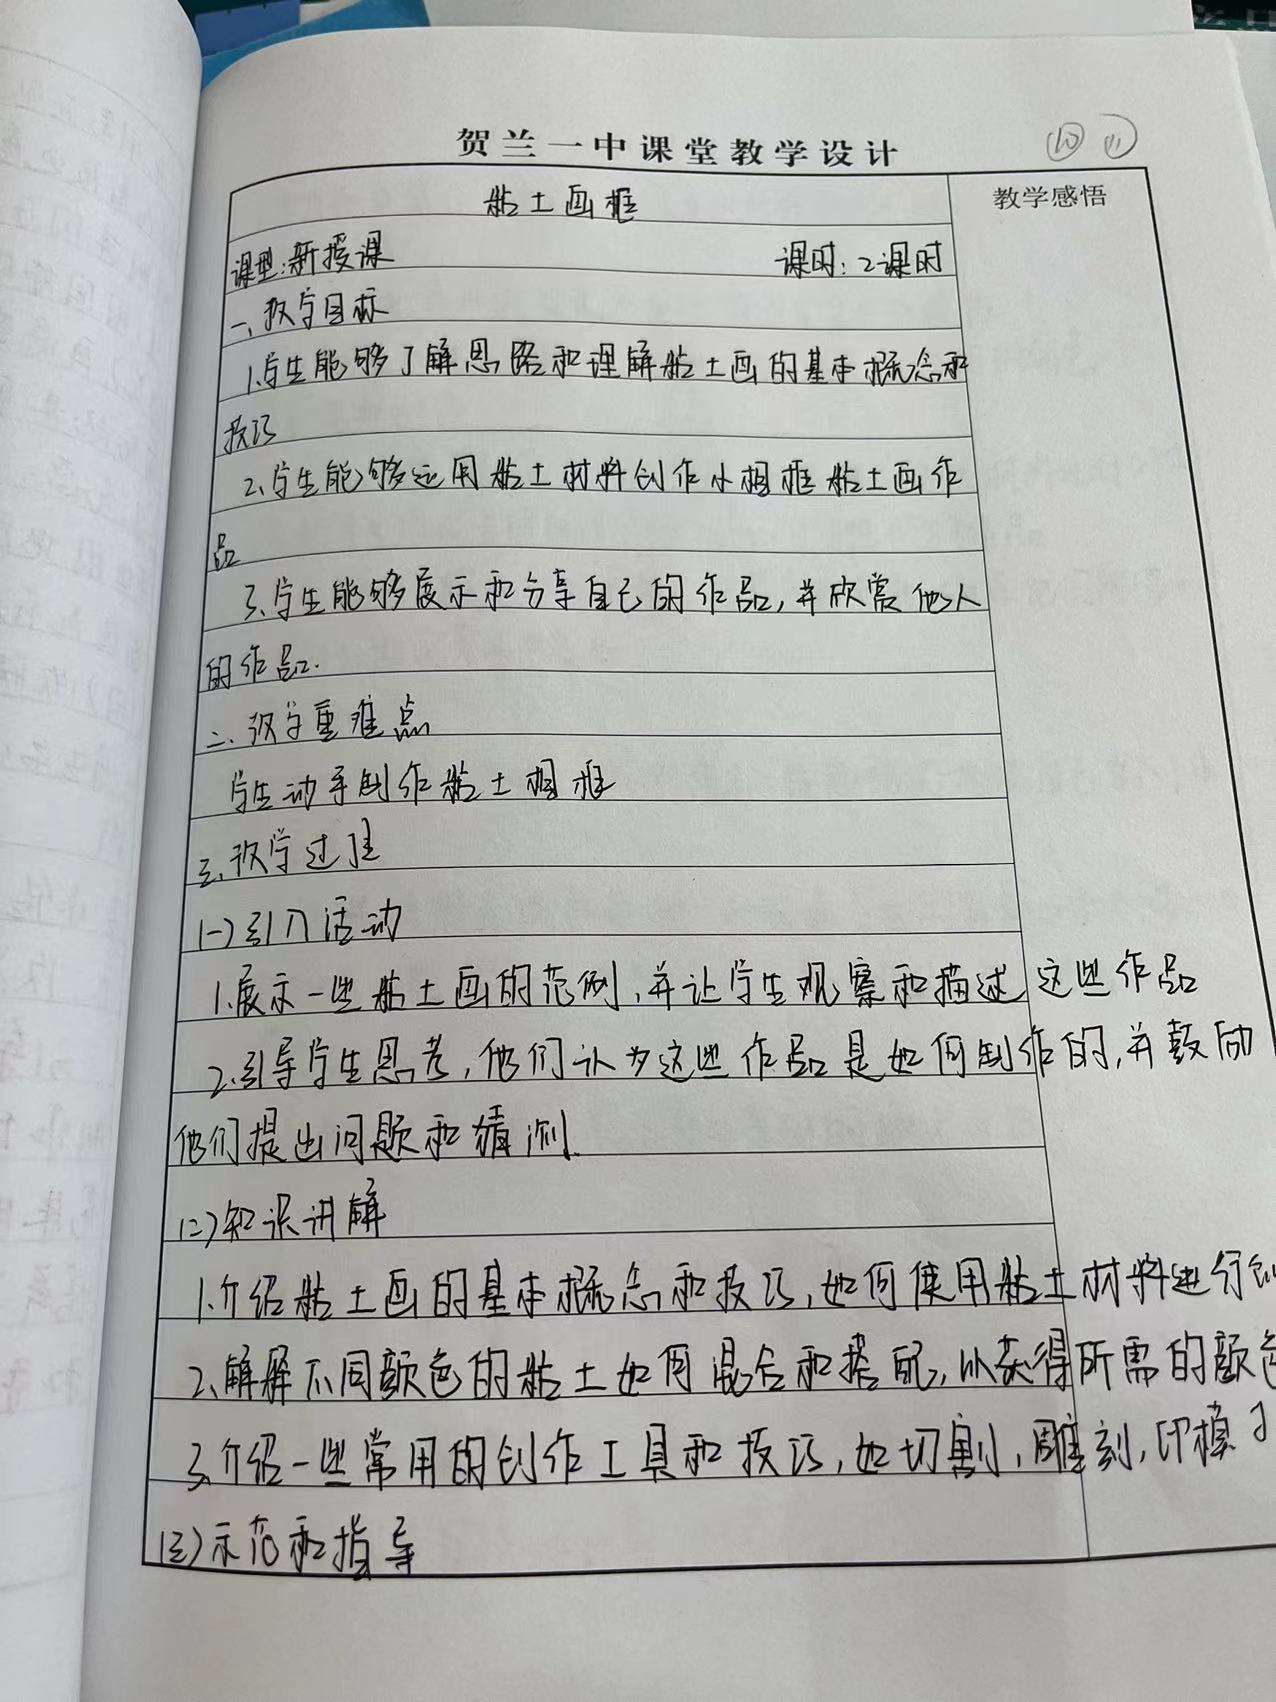 贺兰一中课堂教学设计
⑩ ⑪
粘土画框
教学感悟
课型:新授课 课时:2课时
一、教学目标
1.学生能够了解思路和理解粘土画的基本概念和
技巧
2.学生能够运用粘土材料创作小相框粘土画作
品
3.学生能够展示和分享自己的作品,并欣赏他人
的作品.
二、教学重难点
学生动手制作粘土相框
三、教学过程
(一)引入活动
1.展示一些粘土画的范例,并让学生观察和描述这些作品
2.引导学生思考,他们认为这些作品是如何制作的,并鼓励
他们提出问题和猜测.
(二)知识讲解
1.介绍粘土画的基本概念和技巧,如何使用粘土材料进行创
2.解释不同颜色的粘土如何混合和搭配,以获得所需的颜色
3.介绍一些常用的创作工具和技巧,如切割,雕刻,印模
(三)示范和指导